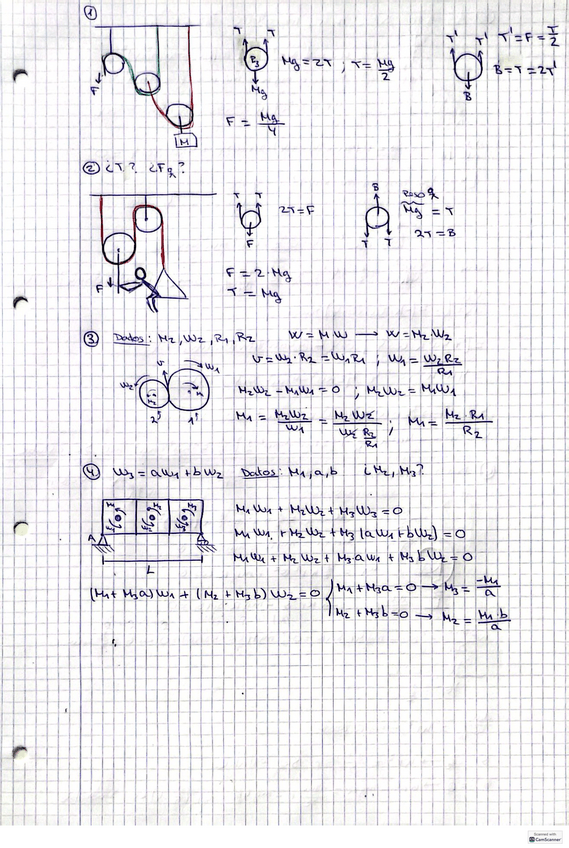 ①
T T
P3
Mg
Mg = 2T ; T = Mg/2
F = Mg/4
F
M
T' T'
B
T' = F = T/2
B = T = 2T'
② ¿T? ¿FR?
F
T T
F
2T = F
F = 2·Mg
T = Mg
B
T T
Mg = T
2T = B
③ Datos: M2, W2, R1, R2 W = M W → W = M2·W2
V = W2·R2 = W1R1 ; W1 = W2R2/R1
W2 V W1
2 1
M2W2 - M1W1 = 0 ; M2W2 = M1W1
M1 = M2W2/W1 = M2W2/(W2 R2/R1) ; M1 = M2·R1/R2
④ W3 = aW1 + bW2 Datos: M1, a, b ¿M2, M3?
A
L
M1W1 + M2W2 + M3W3 = 0
M1W1 + M2W2 + M3(aW1 + bW2) = 0
M1W1 + M2W2 + M3aW1 + M3bW2 = 0
(M1 + M3a)W1 + (M2 + M3b)W2 = 0 { M1 + M3a = 0 → M3 = -M1/a
M2 + M3b = 0 → M2 = M1·b/a
Scanned with
CamScanner